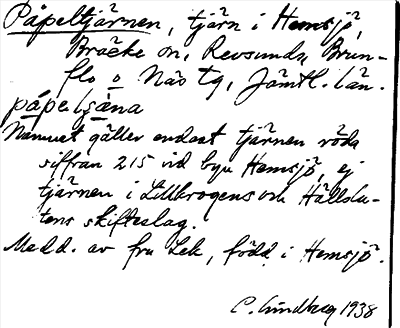 Påpeltjärnen, tjärn i Hemsjö,
Bräcke sn, Revsunds, Brun-
flo o Näs tg, Jämtl. län.
påpeltjäna
Namnet gäller endast tjärnen röda
siffran 215 vid byn Hemsjö, ej
tjärnen i Lillkrogens och Hällslå-
tens skifteslag.
Medd. av fru Lek, född i Hemsjö.
C. Lindberg 1938